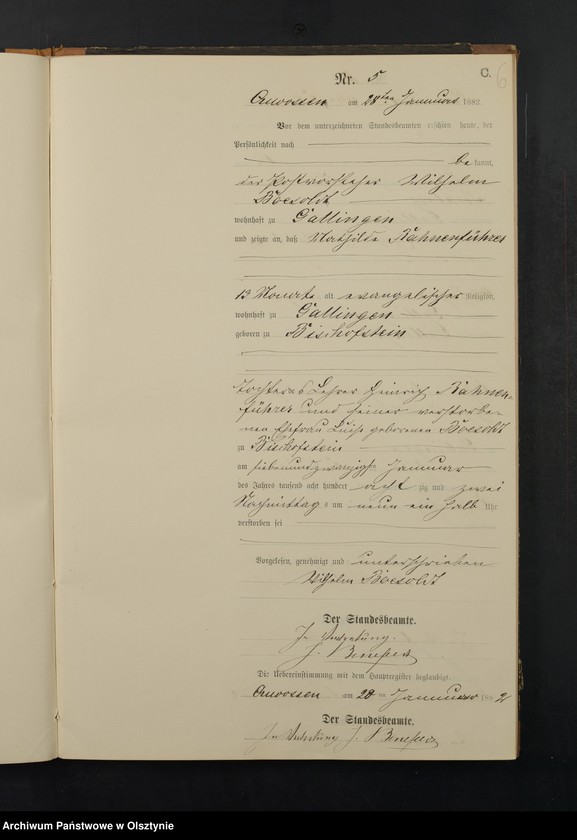 C.
6
Nr. 5
am 28ten Januar 1882.
Vor dem unterzeichneten Standesbeamten erschien heute, der
Persönlichkeit nach
be kannt,
der Postvorsteher Wilhelm
Boesoldt
wohnhaft zu Gallingen
und zeigte an, daß Mathilde Kahnenführer
13 Monate alt evangelischer Religion,
wohnhaft zu Gallingen
geboren zu Bischofstein
Tochter des Lehrer Heinrich Kahnen-
führer und seiner verstorbe-
nen Ehefrau Luise geborenen Boesoldt
zu Bischofstein
am siebenundzwanzigsten Januar
des Jahres tausend acht hundert achtzig und zwei
Nachmittag s um neun ein halb Uhr
verstorben sei
Vorgelesen, genehmigt und unterschrieben
Wilhelm Boesoldt
Der Standesbeamte.
In Vertretung.
Die Uebereinstimmung mit dem Hauptregister beglaubigt.
am 28 ten Januar 1882
Der Standesbeamte.
In Vertretung
Archiwum Państwowe w Olsztynie